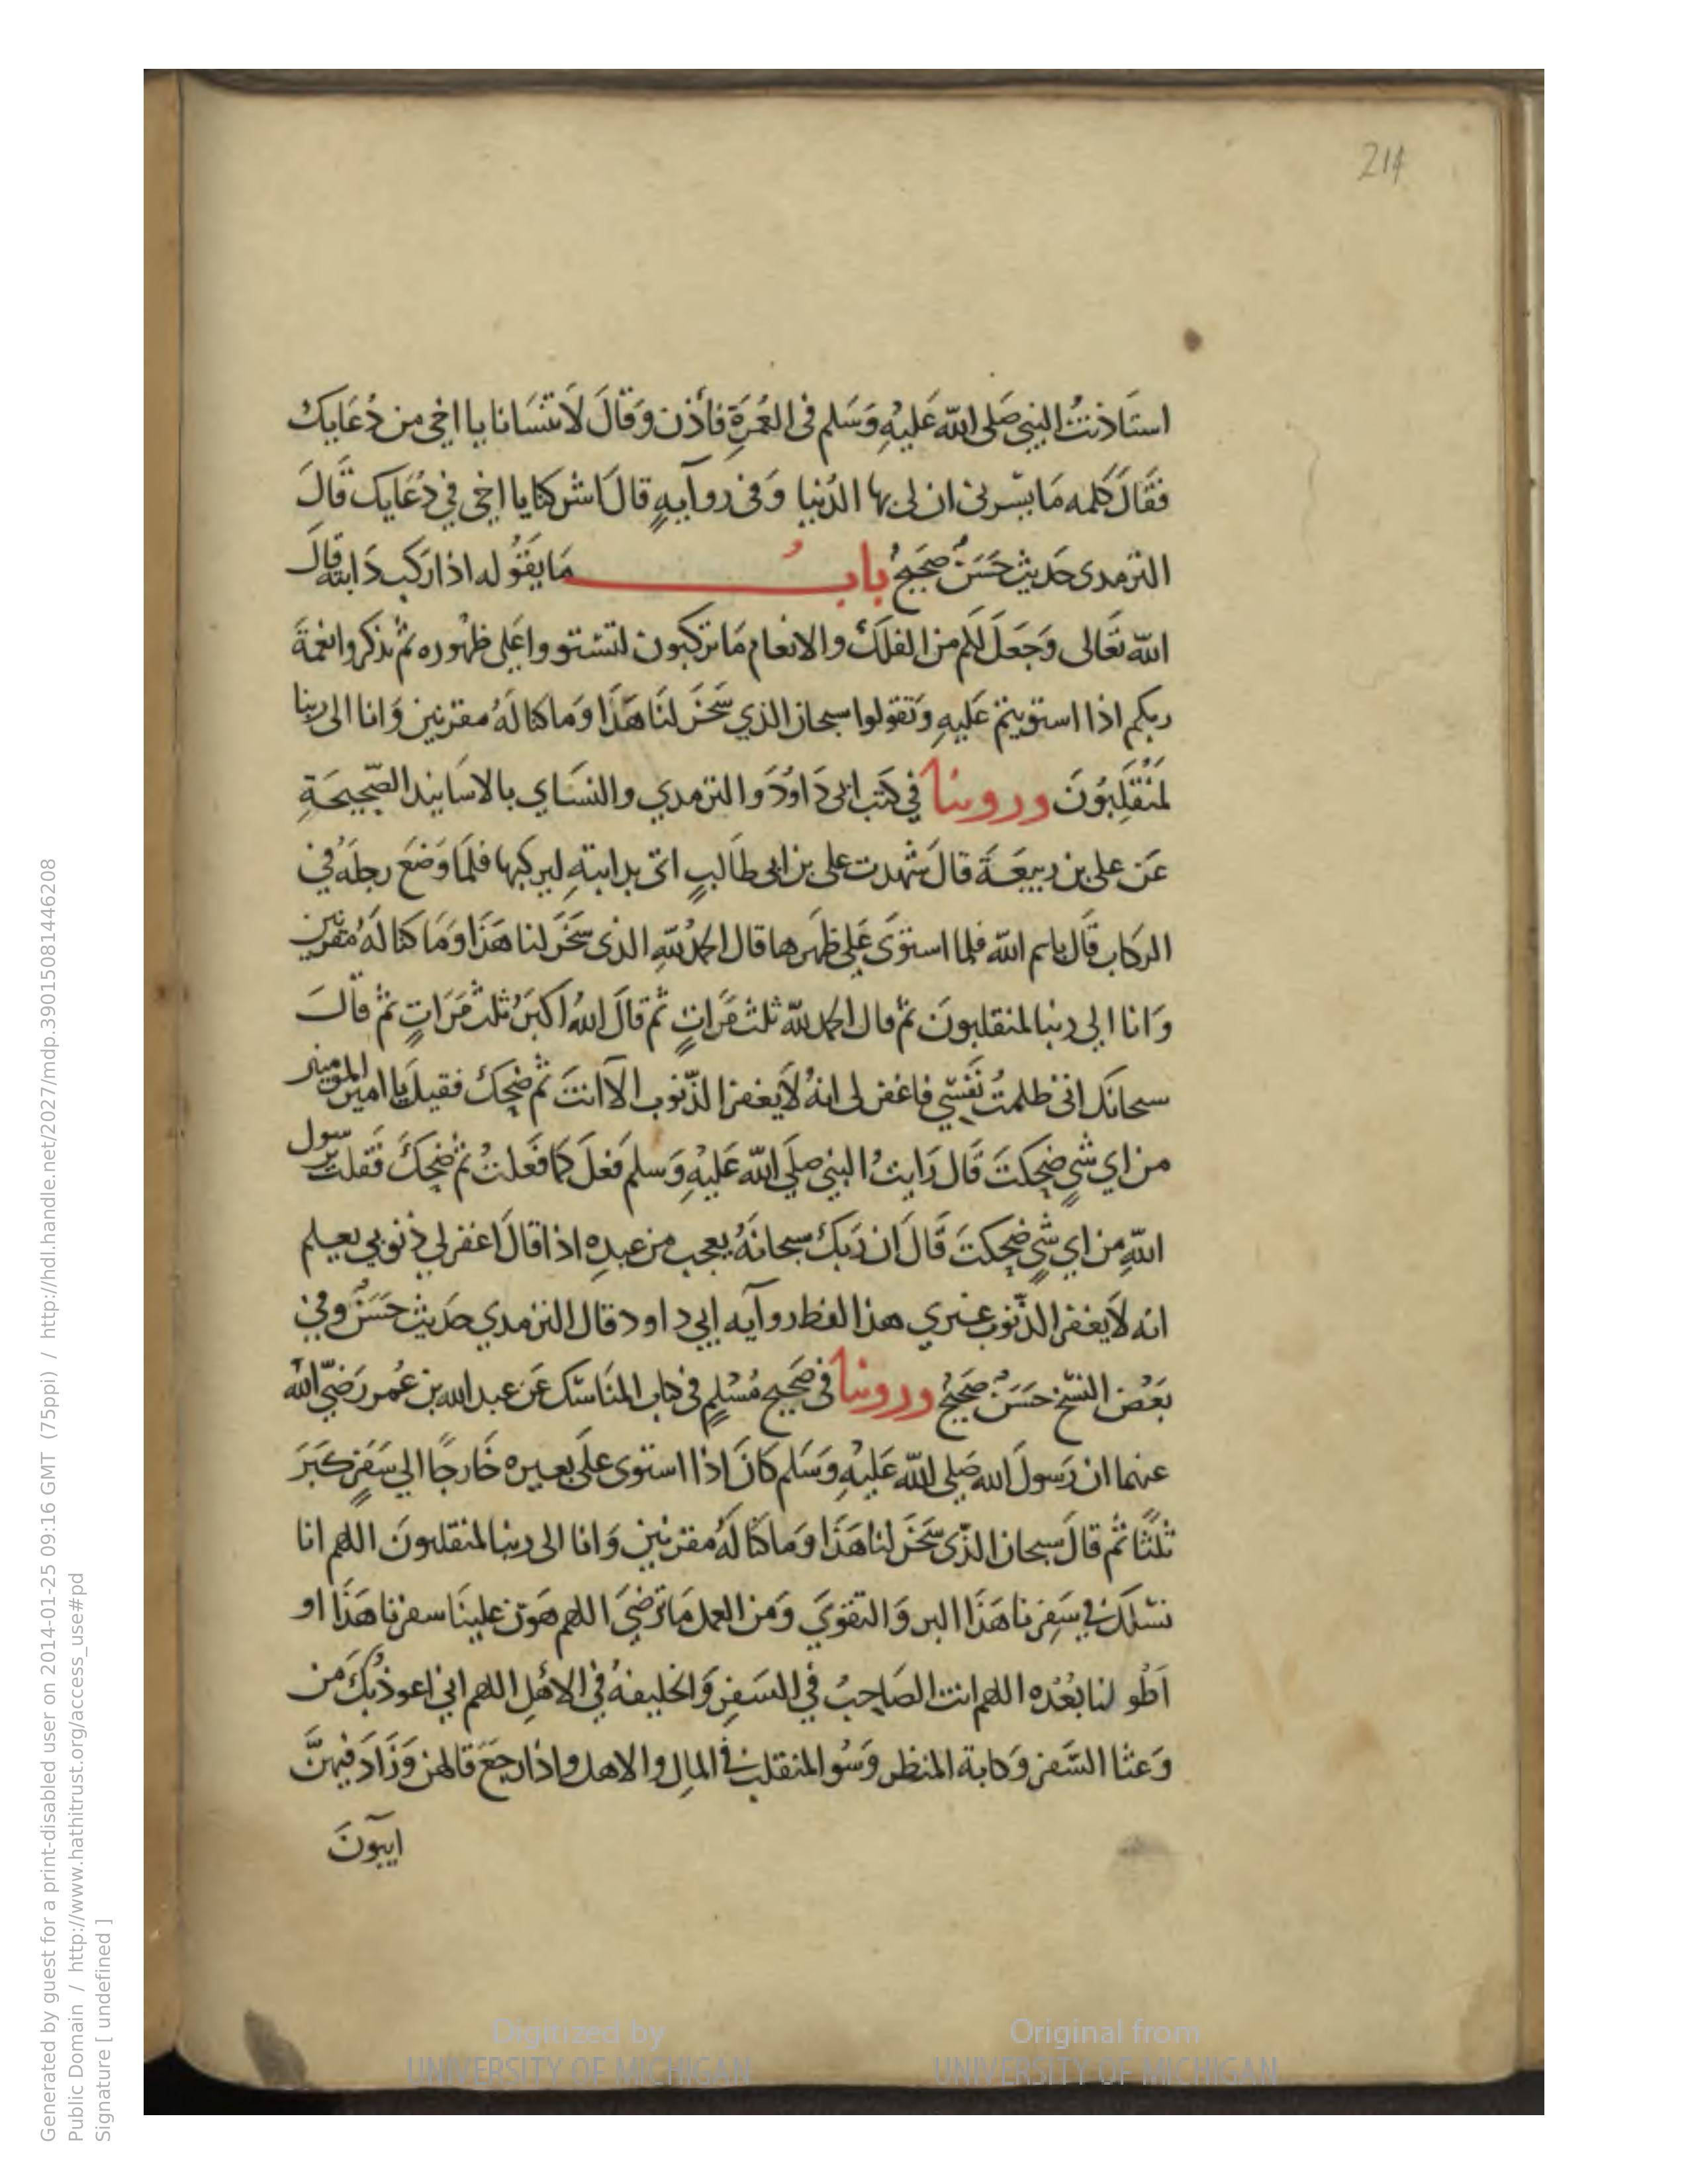 214
استَاذنتُ النبي صَلى الله عَليْهِ وَسَلم فى العُمرَةِ فأذن وَقالَ لَا تنسَانا يا اخي من دُعَايكَ
فقَالَ كلمه مَا يسّرنى ان لى بها الدُنيا وَفى روآيهٍ قالَ اشركنا يا اخي في دُعَايك قالَ
الترمدى حَديث حَسَنٌ صَحيحٌ بابُ مَا يقوُله اذا رَكبَ دَابته قالَ
الله تعَالى وَجَعَلَ لكم من الفلك والانعام مَا تركبون لتستووا عَلى ظهُوره ثم تذكروا نعمَةَ
ربكم اذا استويتم عَليهِ وَتقولوا سبحان الذي سَخرَ لنَا هَذَا وَما كنا لَهُ مقرنين وَانا الى ربنا
لمنُقَلِبُونَ وروينا في كتب ابى دَاوُدَ والترمدي والنسَاي بالاسَانيد الصّحِيحَةِ
عَن على بن ربيعَة قالَ شهدت على بن ابى طَالبٍ اتى بدابتهِ ليركبها فلمَا وَضعَ رجلَهُ في
الركاب قَال باسم الله فلما استَوَى عَلى ظهرها قال الحمدُ للّهِ الذى سَخرَ لنا هَذَا وَمَا كنا لَهُ مقرنين
وَانا الى ربنا لمنقلبونَ ثم قال الحمد للّه ثلث مَرَاتٍ ثم قالَ اللهُ اكبَرُ ثلث مَرَاتٍ ثم قالَ
سبحانَك انى ظلمتُ نَفسي فاغفر لى انهُ لَا يغفر الذّنوب الا انتَ ثم ضحِكَ فقيلَ يا امير المومنين
من اي شيٍ ضحِكتَ قَال رَايتُ النبي صلى الله عَليْهِ وَسلم فعَلَ كمَا فعَلتُ ثم ضحِكَ فقلت يرسول
اللّهِ من اي شيٍ ضحِكتَ قَالَ ان رَبكَ سبحانَهُ يعجب من عبدِه اذا قالَ اغفر لي ذنوبي يعلم
انه لَا يغفر الذّنوب غيري هذا لفظ روآيه ابي داود قال الترمدي حَديث حَسَنٌ وفي
بَعْض النسَخ حَسَنٌ صَحيحٌ وروينا فى صَحيح مُسْلِمٍ فى كتاب المنَاسَك عَن عبد الله بن عُمر رَضيَ الله
عنهما ان رَسولَ الله صَلى الله عَليْهِ وَسَلم كانَ اذا استوى علَى بعيره خَارجًا الي سَفَرٍ كَبَرَ
ثلثًا ثم قالَ سبحان الذّى سَخرَ لنا هَذَا وَما كنا لَهُ مقرنين وَانا الى ربنا لمنقلبونَ اللهم انا
نسْلك في سَفِرنا هَذَا البر وَالتقوَي وَمن العمل مَا ترضَى اللهم هَوّن علينَا سفرنا هَذَا او
اَطْو لنا بُعْدَه اللهم انت الصَاحِبُ في السَفرِ وَالخليفهُ في الاهْلِ اللهم اني اعوذ بكَ من
وَعثا السَّفر وَكابة المنظر وَسُو المنقلب في المالِ والاهل واذا رجعَ قالهن وَزَادَ فيهنَّ
ايبونَ
Generated by guest for a print-disabled user on 2014-01-25 09:16 GMT (75ppi) / http://hdl.handle.net/2027/mdp.39015081446208
Public Domain / http://www.hathitrust.org/access_use#pd
Signature [ undefined ]
Digitized by
UNIVERSITY OF MICHIGAN
Original from
UNIVERSITY OF MICHIGAN